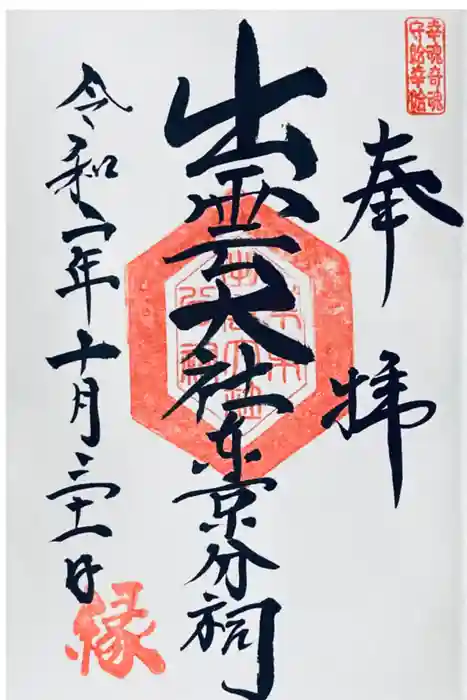 幸魂奇魂
守給幸給
奉拝
出雲大社東京分祠
令和二年十月三十一日
縁